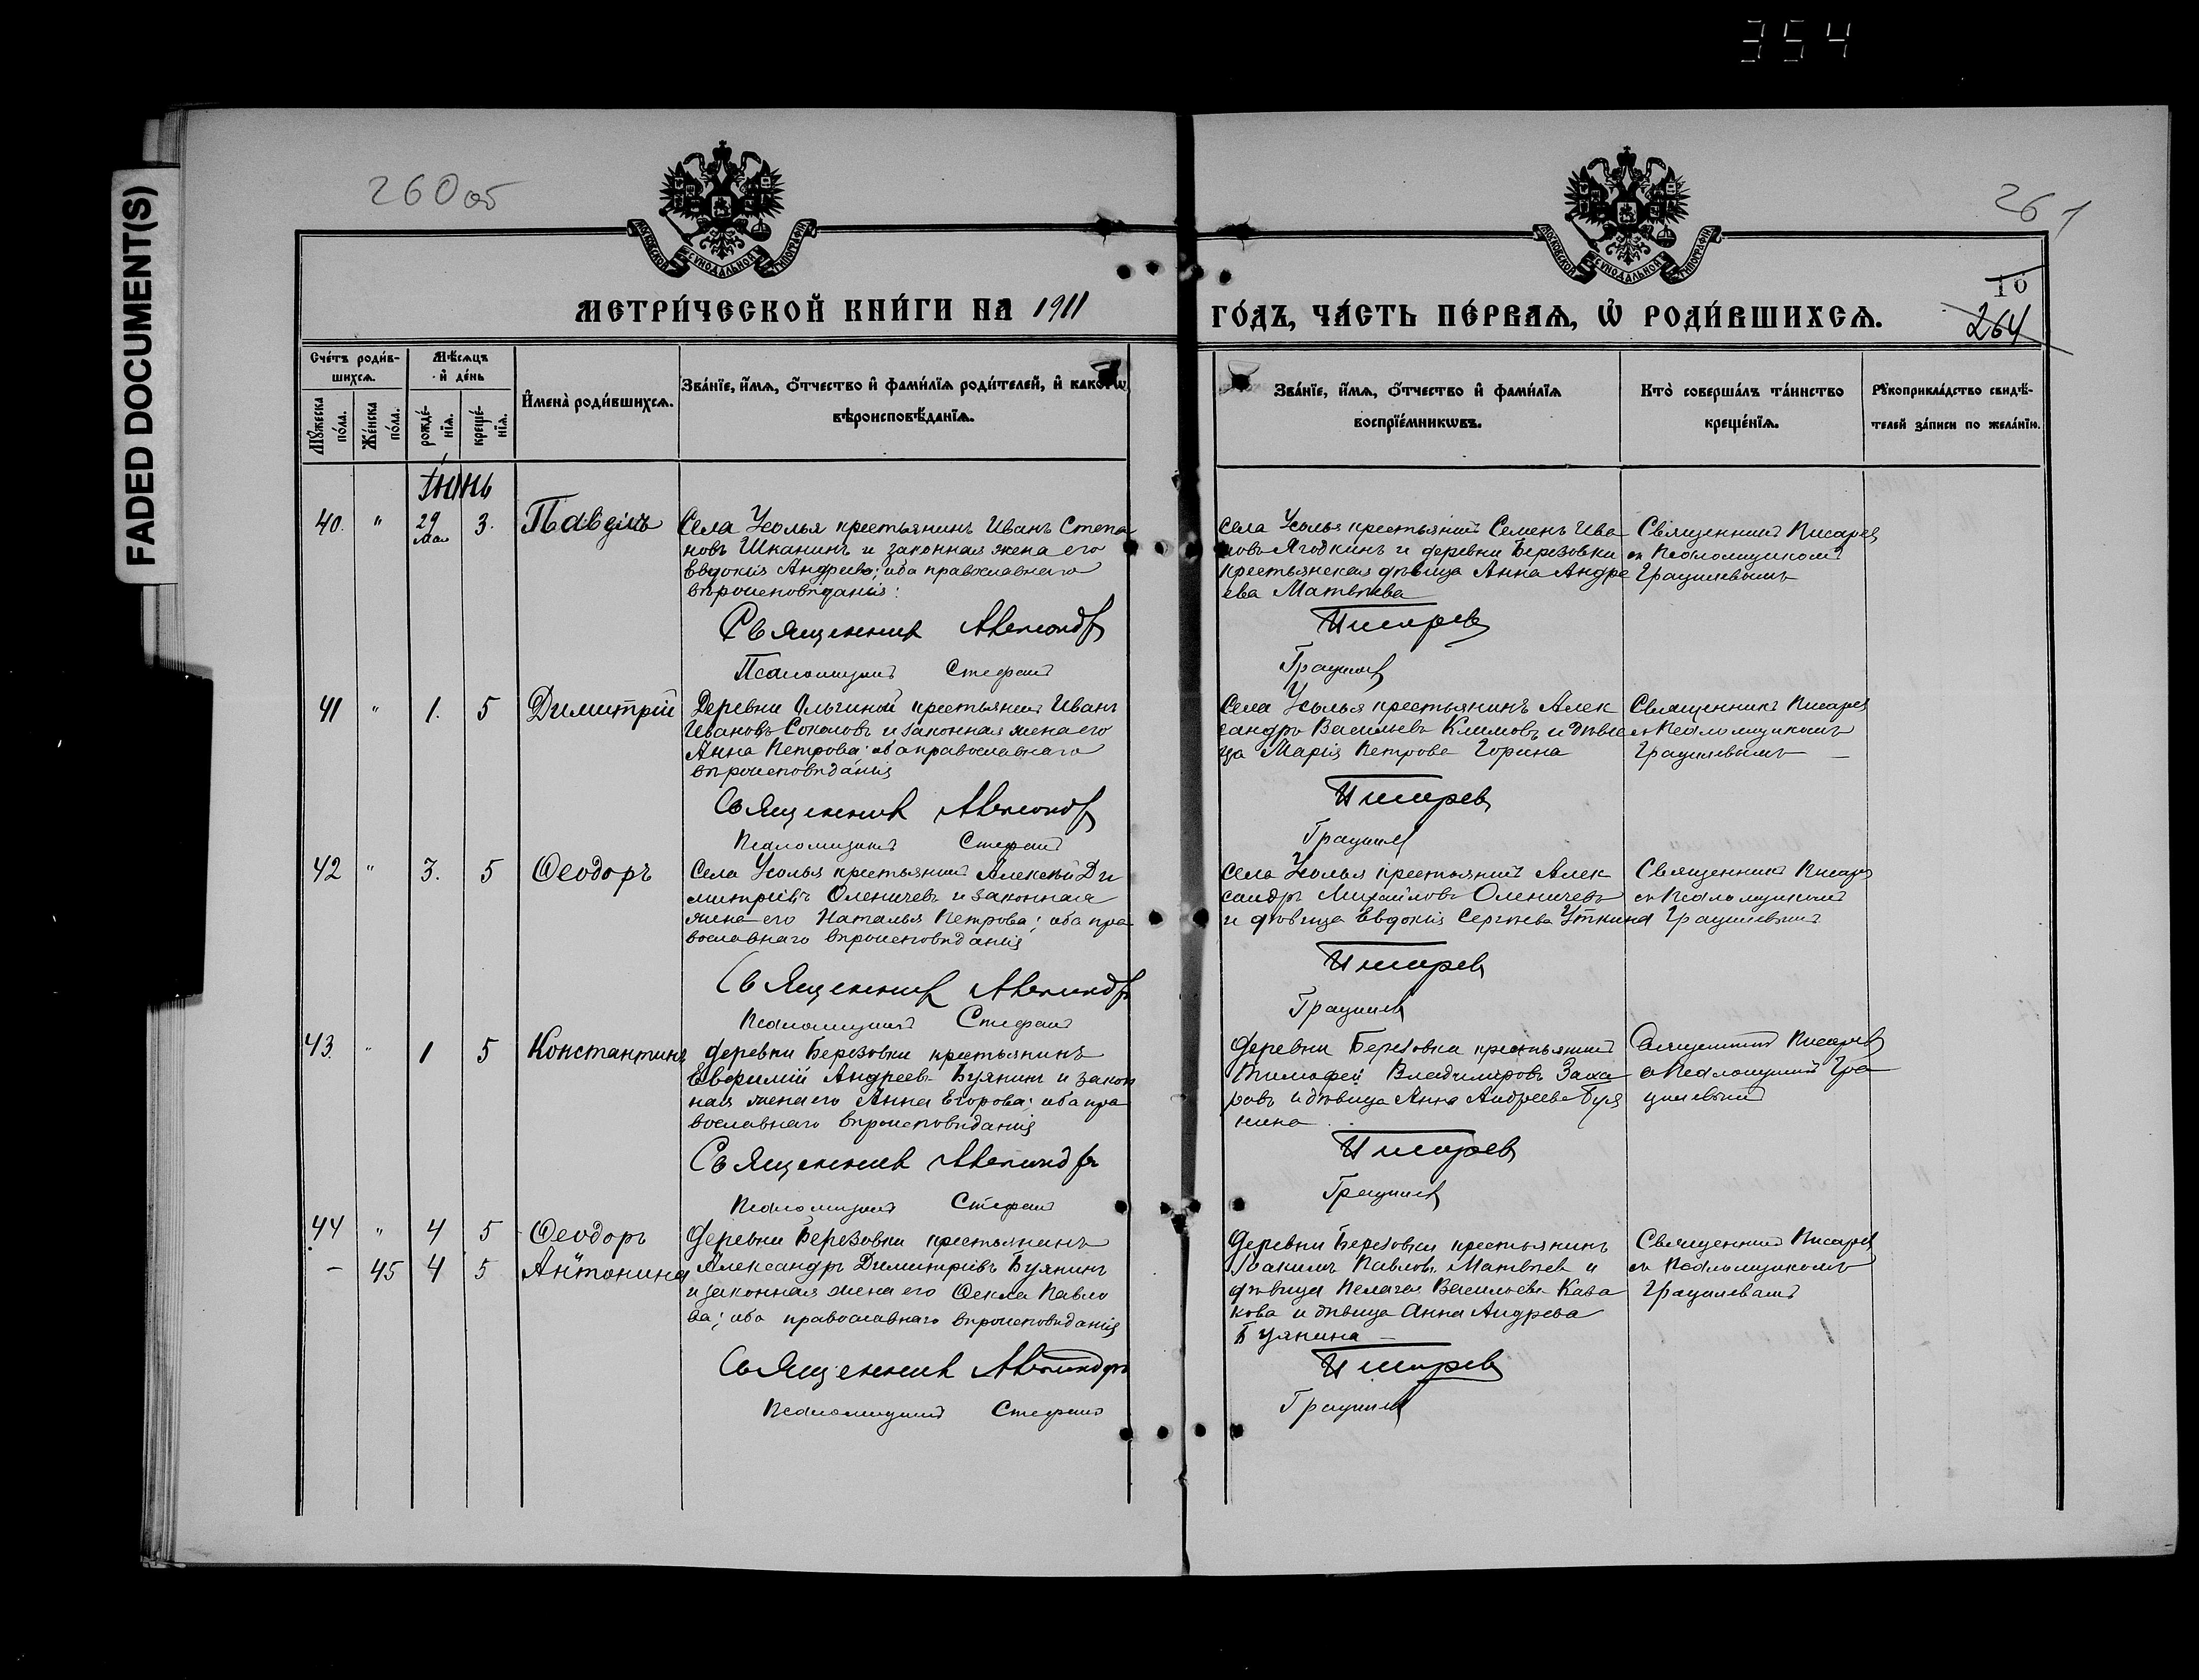 354
FADED DOCUMENT(S)
260 об
261
МОСКОВСКОЙ СѴНОДАЛЬНОЙ ТИПОГРАФІИ
МОСКОВСКОЙ СѴНОДАЛЬНОЙ ТИПОГРАФІИ
10
264
МЕТРИ́ЧЕСКОЙ КНИ́ГИ НА 1911
ГО́ДЪ, ЧА́СТЬ ПЕ́РВАѦ, Ѽ РОДИ́ВШИХСѦ.
Сче́тъ роди́в-
шихсѧ.
Мѣ́сѧцъ
и҆ де́нь
И҆мена̀ роди́вшихсѧ.
Зва́нїе, и҆́мѧ, ѻ҆́тчество и҆ фами́лїѧ роди́телей, и҆ како́гѡ
вѣроисповѣ́данїѧ.
Мꙋ́жеска по́ла.
Же́нска по́ла.
рожде́-нїѧ.
креще́-нїѧ.
Зва́нїе, и҆́мѧ, ѻ҆́тчество и҆ фами́лїѧ
воспрїе́мникѡвъ.
Кто̀ соверша́лъ та́инство
креще́нїѧ.
Рꙋкоприкла́дство свидѣ́-
телей за́писи по жела́нїю.
Іюнь
40. " 29 мая 3. Павелъ
Села Усолья крестьянинъ Иванъ Степа
новъ Шканинъ и законная жена его
Евдокія Андреева; оба православнаго
вѣроисповѣданія:
Священникъ Александръ
Псаломщикъ Стефанъ
Села Усолья крестьянинъ Семенъ Ива
новъ Ягодкинъ и деревни Березовки
крестьянская дѣвица Анна Андре
ева Матвѣева
Писаревъ
Грацилевъ
Священникъ Писаревъ
съ Псаломщикомъ
Грацилевымъ
41 " 1. 5 Димитрій
Деревни Ольгиной крестьянинъ Иванъ
Ивановъ Соколовъ и законная жена его
Анна Петрова: оба православнаго
вѣроисповѣданія
Священникъ Александръ
Псаломщикъ Стефанъ
Села Усолья крестьянинъ Алек
сандръ Васильевъ Климовъ и дѣви
ца Марія Петрова Горина
Писаревъ
Грацилевъ
Священникъ Писаревъ
съ Псаломщикомъ
Грацилевымъ
42 " 3. 5 Ѳеодоръ
Села Усолья крестьянинъ Алексѣй Ди
митріевъ Оленичевъ и законная
жена его Наталья Петрова; оба пра
вославнаго вѣроисповѣданія
Священникъ Александръ
Псаломщикъ Стефанъ
Села Усолья крестьянинъ Алек
сандръ Михайловъ Оленичевъ
и дѣвица Евдокія Сергѣева Уткина
Писаревъ
Грацилевъ
Священникъ Писаревъ
съ Псаломщикомъ
Грацилевымъ
43. " 1 5 Константинъ
Деревни Березовки крестьянинъ
Евѳимій Андреевъ Буянинъ и закон
ная жена его Анна Егорова; оба пра
вославнаго вѣроисповѣданія
Священникъ Александръ
Псаломщикъ Стефанъ
Деревни Березовки крестьянинъ
Тимофей Владиміровъ Заха
ровъ и дѣвица Анна Андреева Буя
нина
Писаревъ
Грацилевъ
Священникъ Писаревъ
съ Псаломщикомъ Гра
цилевымъ
44 " 4 5 Ѳеодоръ
– 45 4 5 Антонина
Деревни Березовки крестьянинъ
Александръ Димитріевъ Буянинъ
и законная жена его Ѳекла Павло
ва; оба православнаго вѣроисповѣданія
Священникъ Александръ
Псаломщикъ Стефанъ
Деревни Березовки крестьянинъ
Іоакимъ Павловъ Матвѣев и
дѣвица Пелагея Васильева Каза
кова и дѣвица Анна Андреева
Буянина
Писаревъ
Грацилевъ
Священникъ Писаревъ
съ Псаломщикомъ
Грацилевымъ